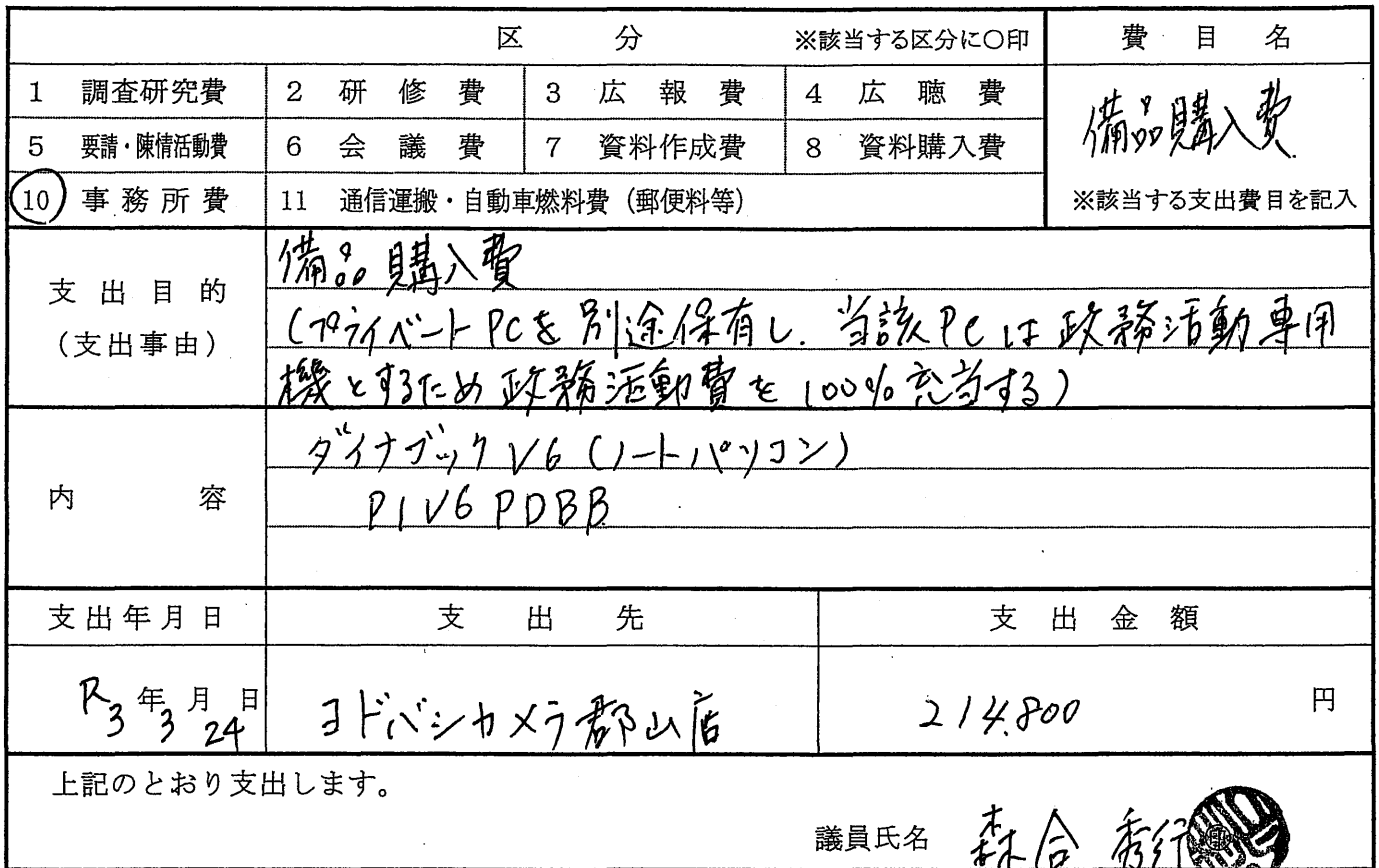 区 分 ※該当する区分に○印 費 目 名
1 調査研究費 2 研 修 費 3 広 報 費 4 広 聴 費
備品購入費
5 要請・陳情活動費 6 会 議 費 7 資料作成費 8 資料購入費
10 事 務 所 費 11 通信運搬・自動車燃料費（郵便料等） ※該当する支出費目を記入
支 出 目 的
（支出事由）
備品購入費
(プライベートPCを別途保有し、当該PCは政務活動専用
機とするため政務活動費を100%充当する)
内 容
ダイナブックV6(ノートパソコン)
P1V6PDBB
支出年月日 支 出 先 支 出 金 額
R3年3月24日 ヨドバシカメラ郡山店 214,800 円
上記のとおり支出します。
議員氏名 森合 秀行